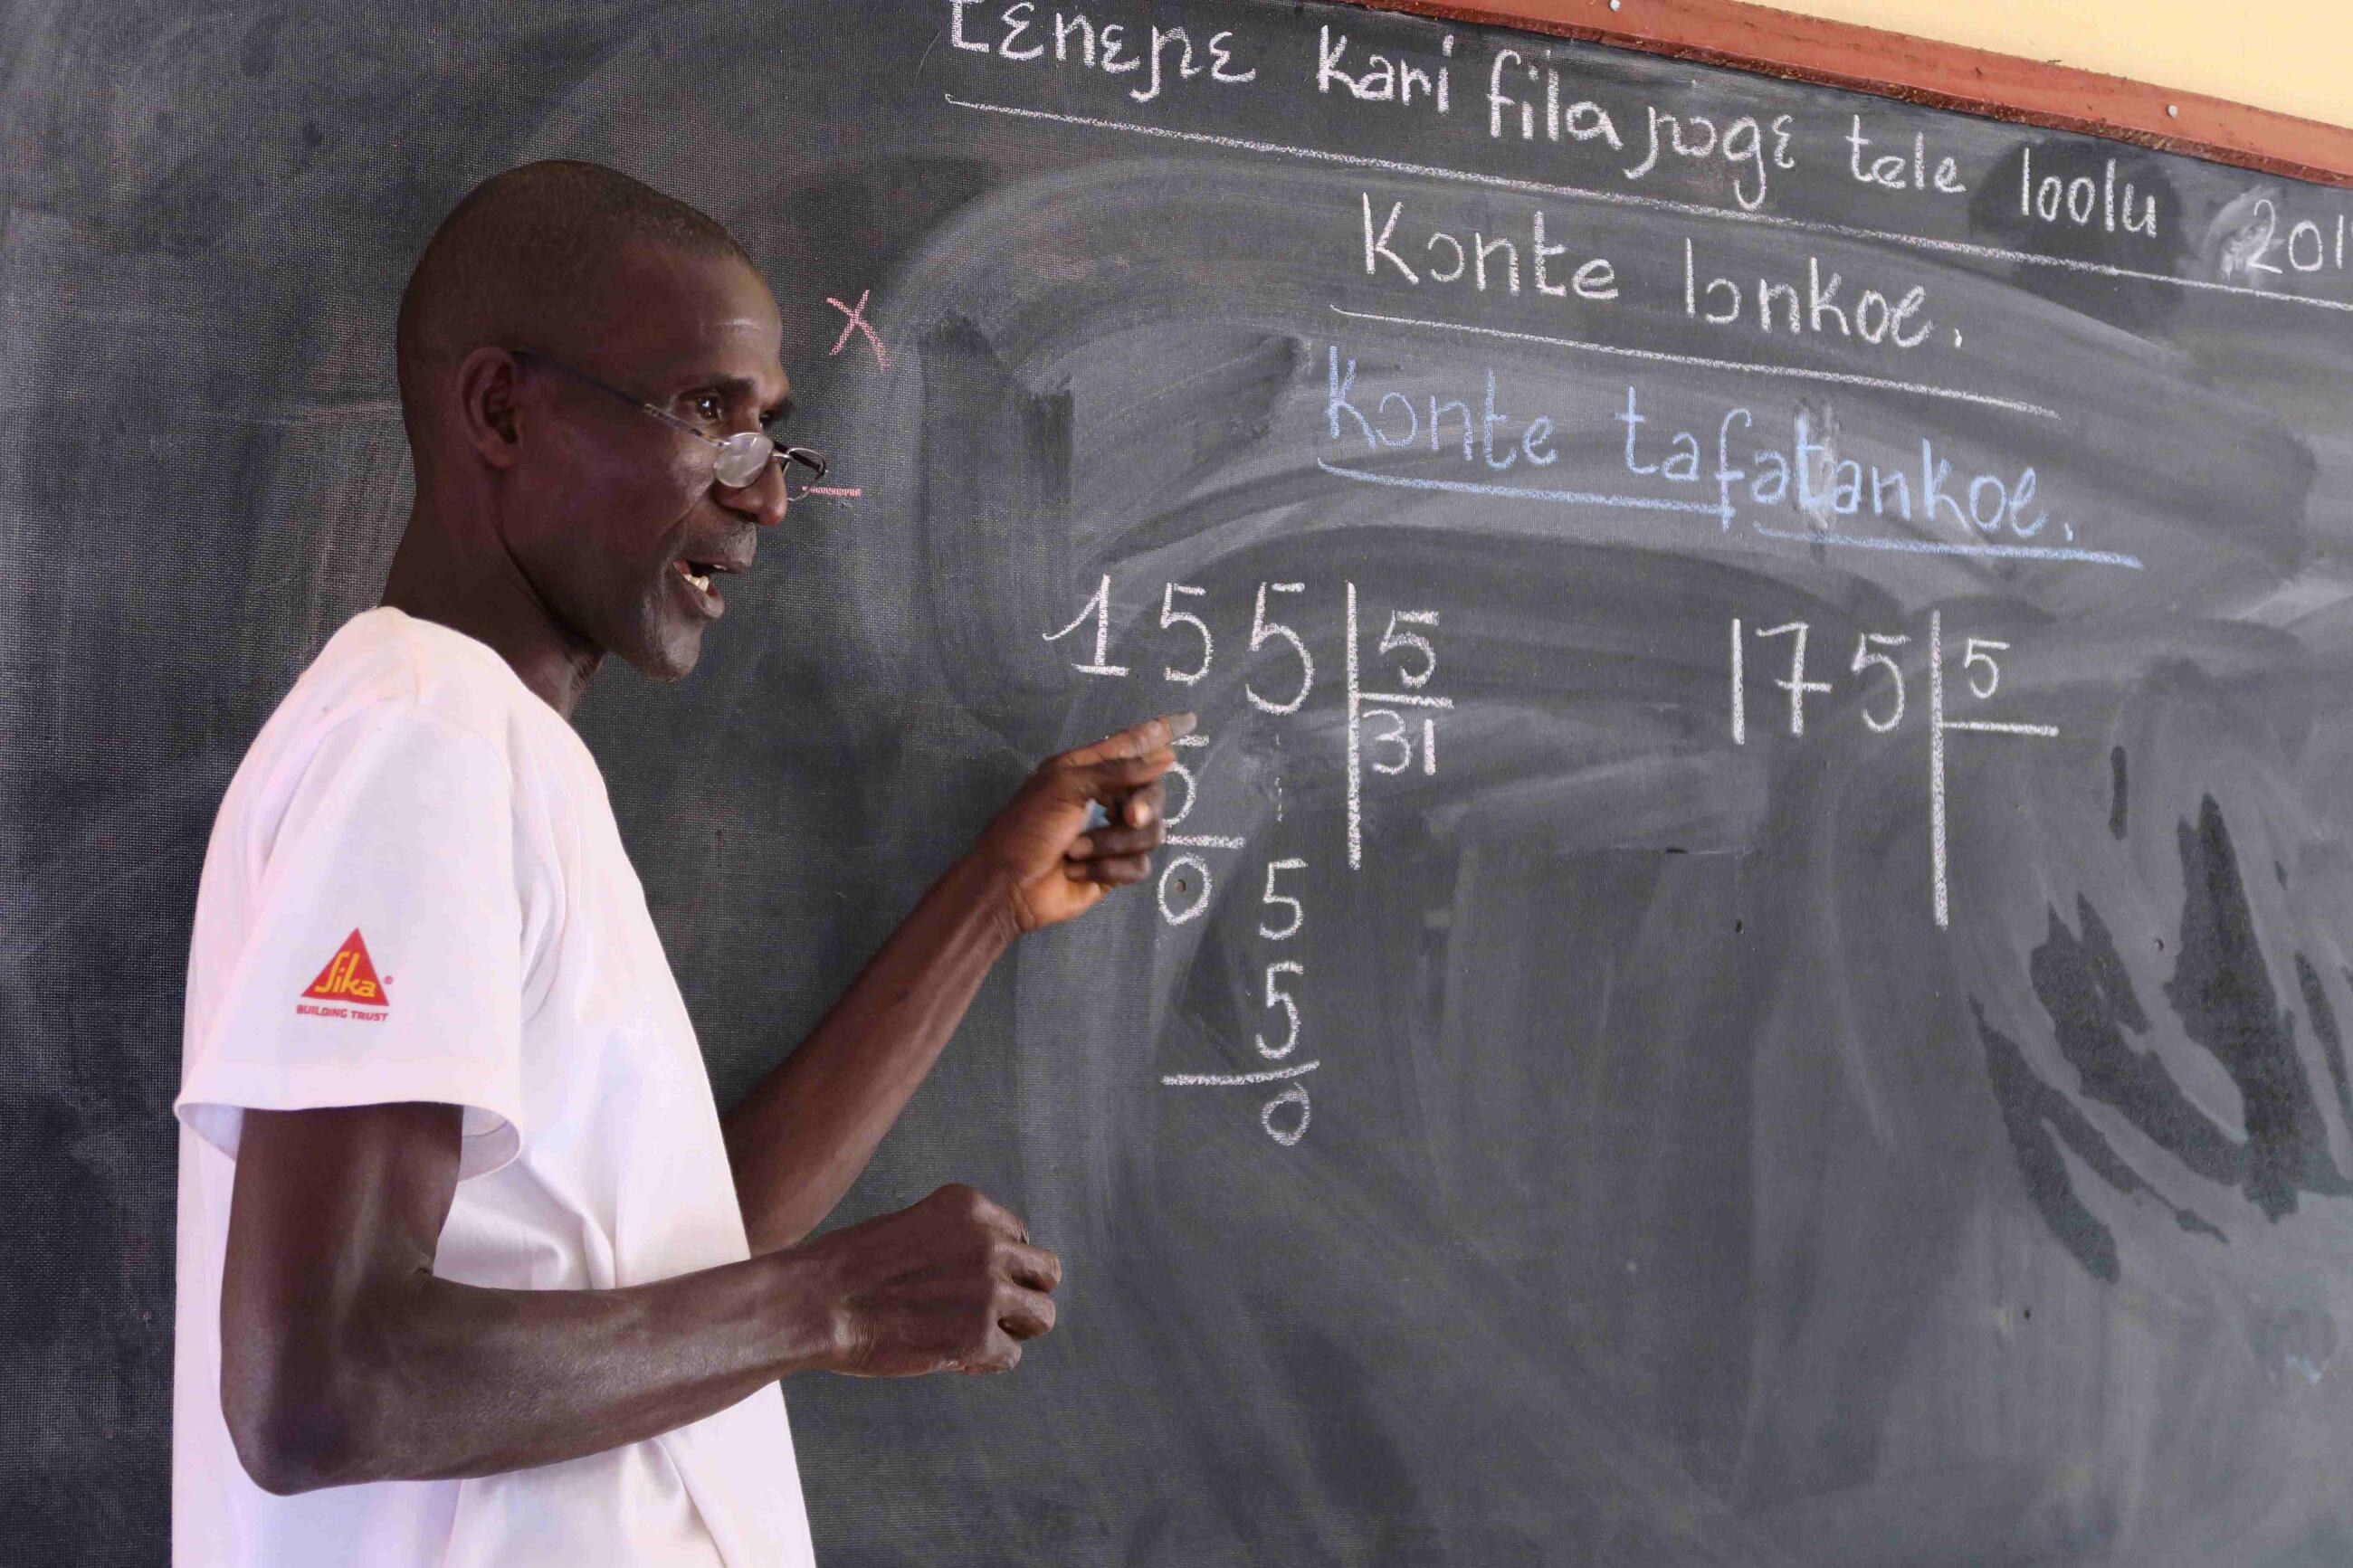 Tɛnɛɲɛ kari filaɲɔgɛ tele loolu 201
Kɔnte lɔnkoe.
Kɔnte tafatankoe.
X
155 5
31
5
0
5
5
0
175 5
Sika®
BUILDING TRUST